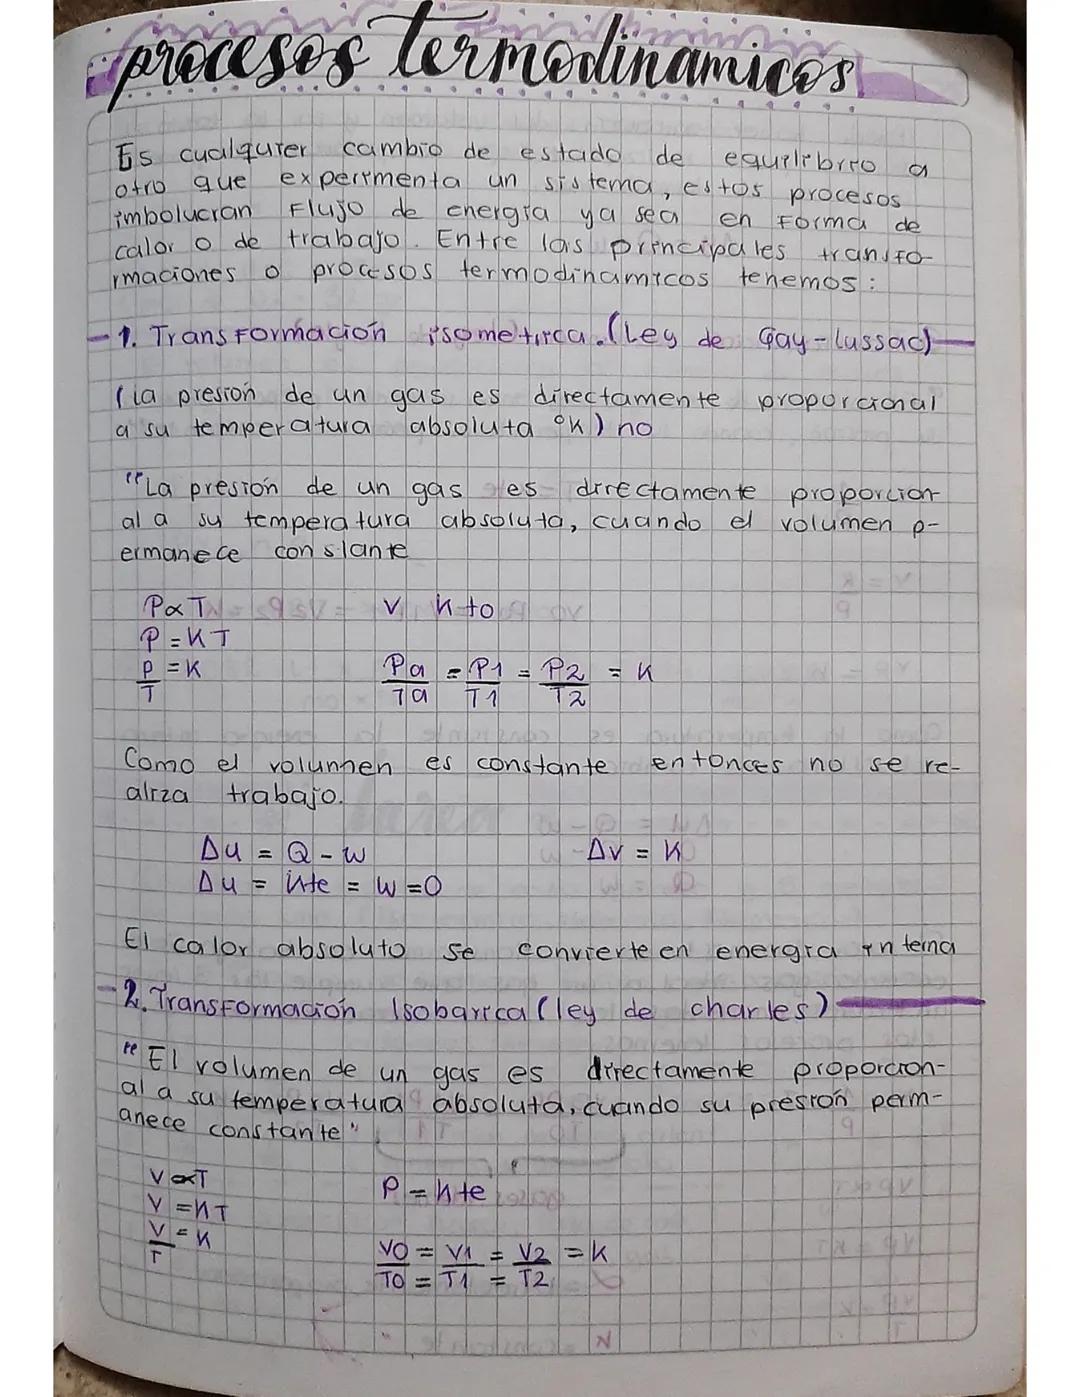 procesos termodinamicos
Es cualquier cambio de estado de equilibrio a
otro que experimenta un sistema, estos procesos
imbolucran Flujo de energía ya sea en Forma de
calor o de trabajo. Entre las principales transfo-
rmaciones o procesos termodinamicos tenemos:
-1. TransFormación isometirca.(Ley de Gay-lussac)
(la presión de un gas es directamente proporcional
a su temperatura absoluta °K) no
"La presión de un gas es directamente proporcion-
al a su temperatura absoluta, cuando el volumen p-
ermanece constante
P∝T V K to
P=KT
P/T = K Pa/Ta = P1/T1 = P2/T2 = K
Como el volunmen es constante entonces no se re-
aliza trabajo.
Δu = Q - w Δv = K
Δu = Kte = W = 0
El calor absoluto se convierte en energia interna
-2. TransFormación Isobarica (ley de charles)
"El volumen de un gas es directamente proporcion-
al a su temperatura absoluta, cuando su presión perm-
anece constante"
V∝T P = Kte
V = KT
V/T = K V0/T0 = V1/T1 = V2/T2 = K